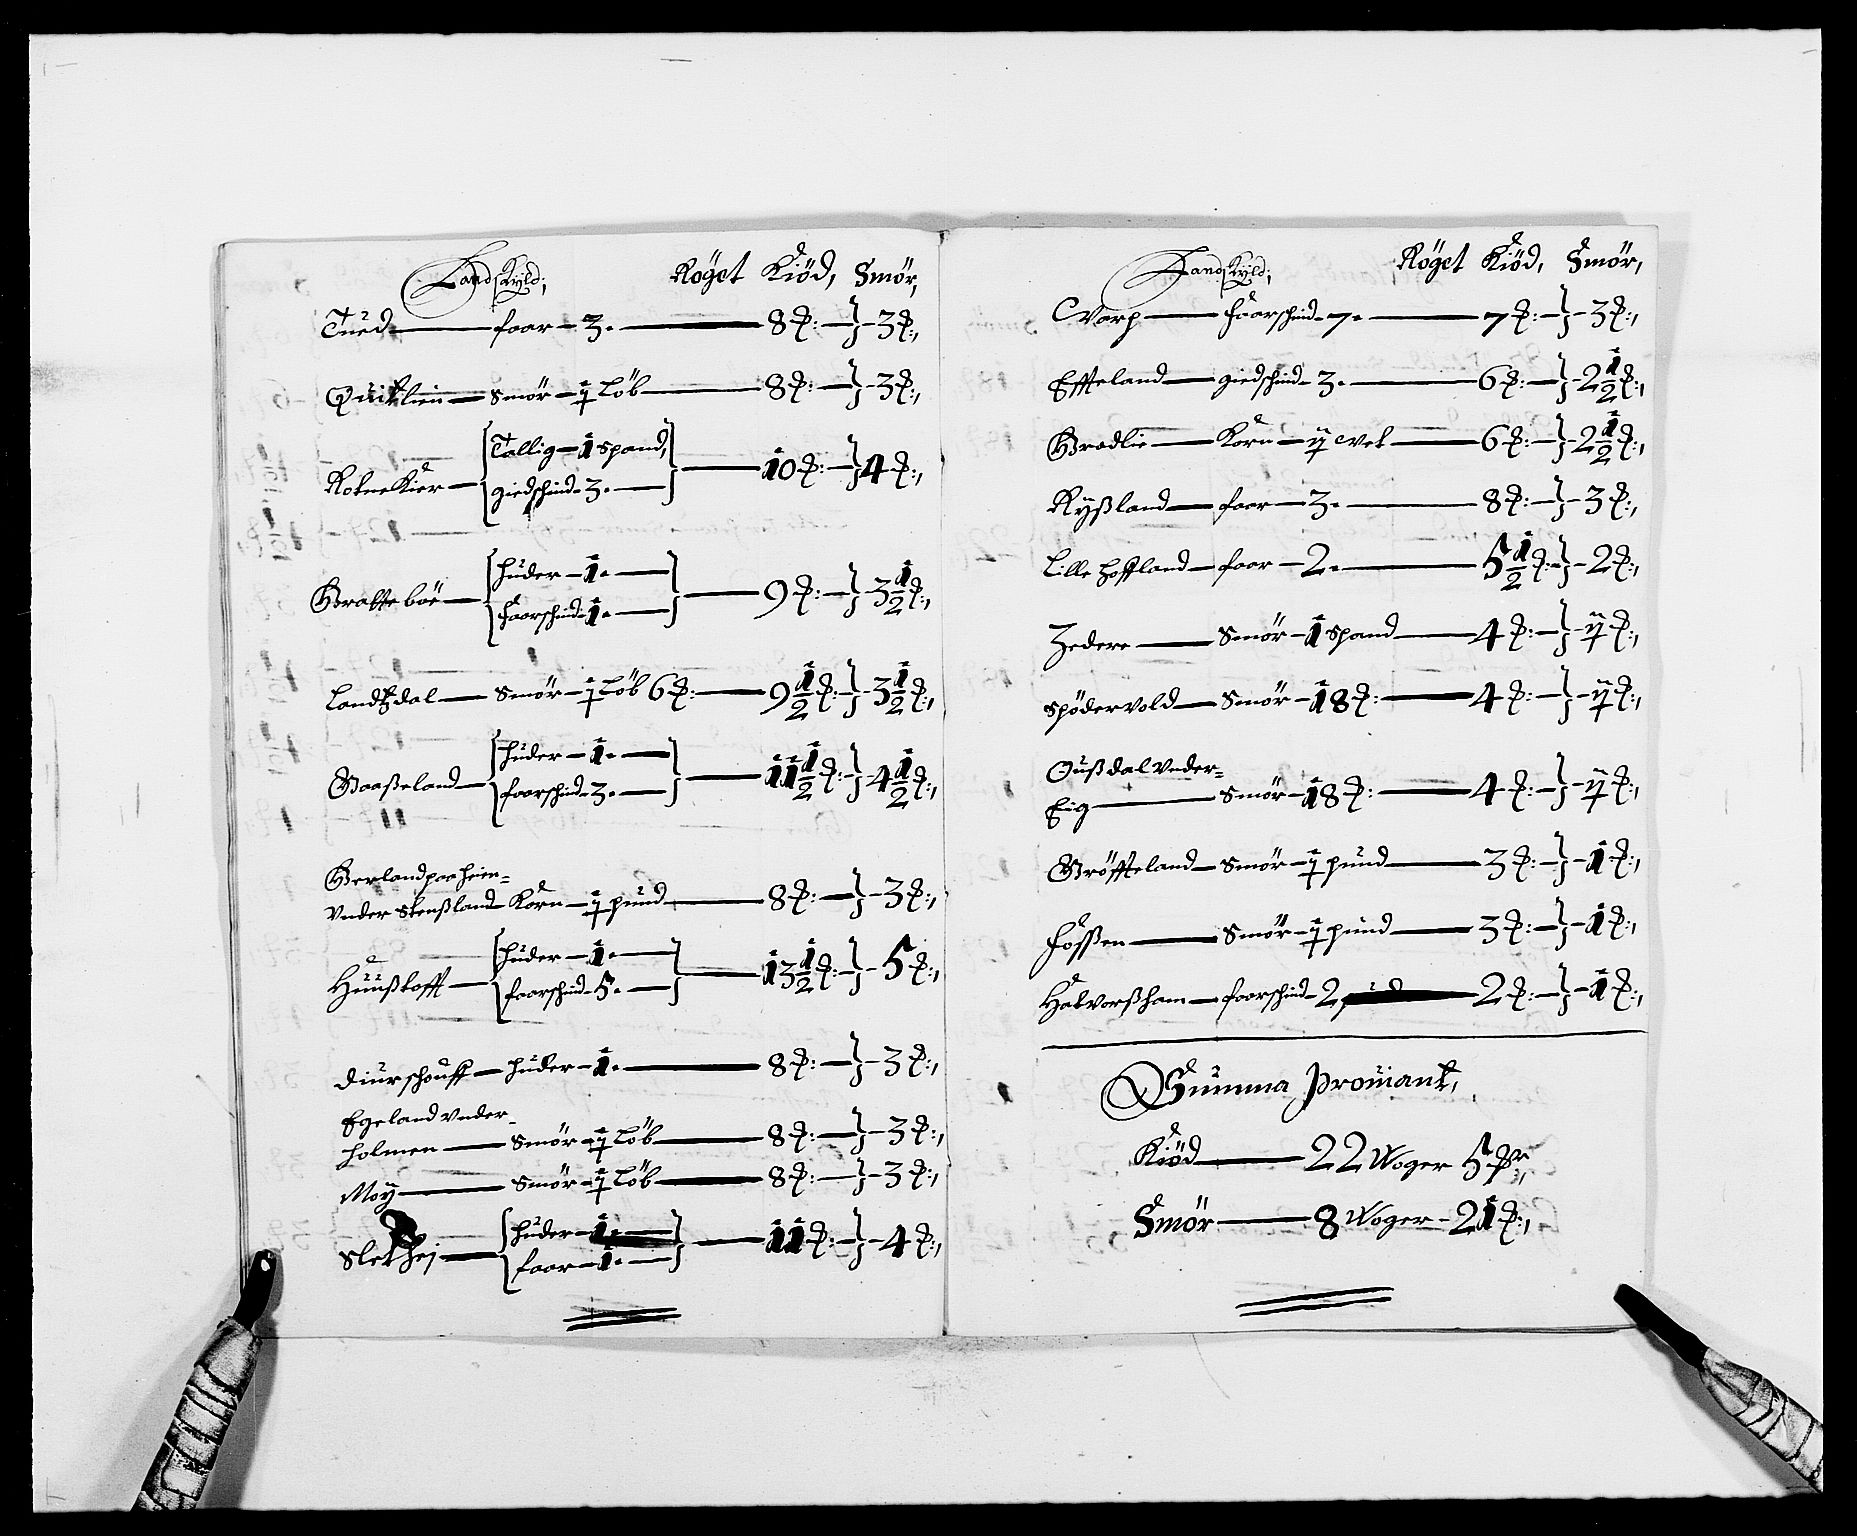 Landskyld; Röget Kiöd, Smör,
Tued — faar — 3. — 8 ℔: — 3 ℔:,
Quitlien — Smör — j Löb — 8 ℔: — 3 ℔:,
Rotnekier — Tallig — 1 Spand, giedschind 3. — 10 ℔: — 4 ℔:,
Bratte böe — huder — 1. — faarschind 1. — 9 ℔: — 3 1/2 ℔:,
Landtzdal — Smör — j Löb 6 ℔: — 9 1/2 ℔: — 3 1/2 ℔:,
Gaasseland — huder — 1. — faarschind 3. — 11 1/2 ℔: — 4 1/2 ℔:,
Berland paa heien
vnder Stensland Korn — j pund — 8 ℔: — 3 ℔:,
huder — 1. — faarschind 5. — 13 1/2 ℔: — 5 ℔:,
huder — 1. — 8 ℔: — 3 ℔:,
Egeland vnder
holmen — Smör — j Löb — 8 ℔: — 3 ℔:,
Moy — Smör — j Löb — 8 ℔: — 3 ℔:,
Slethej — huder — 1. — faar — 1. — 11 ℔: — 4 ℔:,
Landskyld; Röget Kiöd, Smör,
Warp — Faarschind 7. — 7 ℔: — 3 ℔:,
Effteland — giedschind 3. — 6 ℔: — 2 1/2 ℔:,
Bradlie — Korn — ij wet — 6 ℔: — 2 1/2 ℔:,
Rysland — faar — 3. — 8 ℔: — 3 ℔:,
Lille hoffland — faar — 2. — 5 1/2 ℔: — 2 ℔:,
Zedere — Smör — 1 Spand — 4 ℔: — ij ℔:,
Spödervold — Smör — 18 ℔: — 4 ℔: — ij ℔:,
Ousdal vnder
Eig — Smör — 18 ℔: — 4 ℔: — ij ℔:,
Gröffteland — Smör — j pund — 3 ℔: — 1 ℔:,
Fossen — Smör — j pund — 3 ℔: — 1 ℔:,
Halvorsham — faarschind 2, — 2 ℔: — 1 ℔:,
Summa Proviant,
Kiöd — 22 Woger 5 ℔:,
Smör — 8 Woger — 21 ℔:,